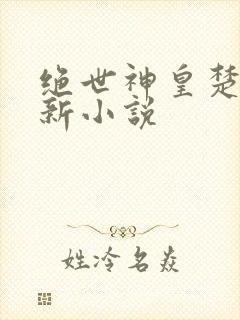 绝世神皇楚
新小说
姓冷名焱